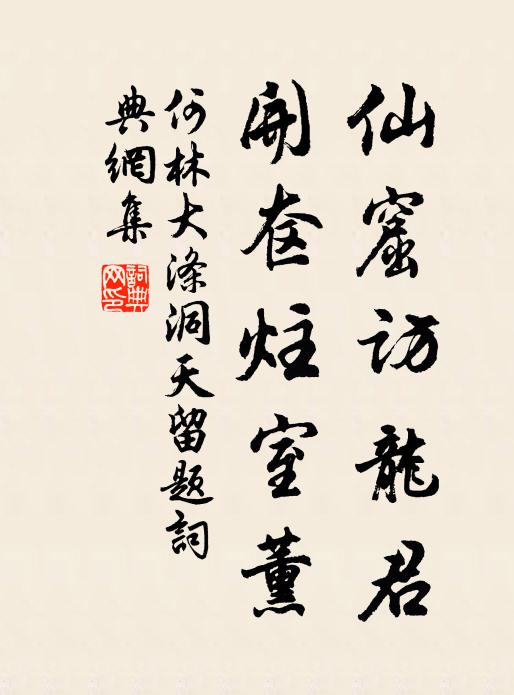 仙窟訪龍君
開奁炷室薰
何林大滌洞天留題詞
典網集
詞典網印